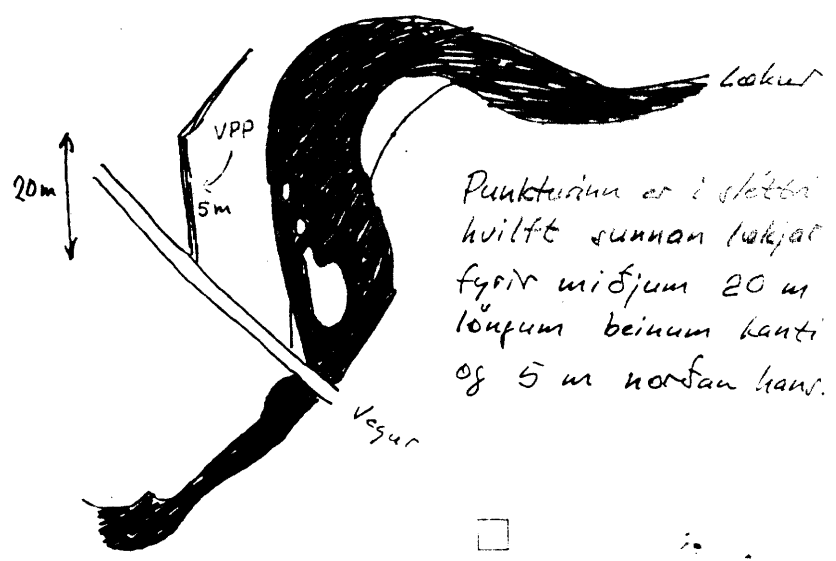 Lækur
VPP
20m
5m
Punkturinn er í sléttri
hvilft sunnan lækjar
fyrir miðjum 20 m
löngum beinum kanti
og 5 m norðan hans.
Vegur